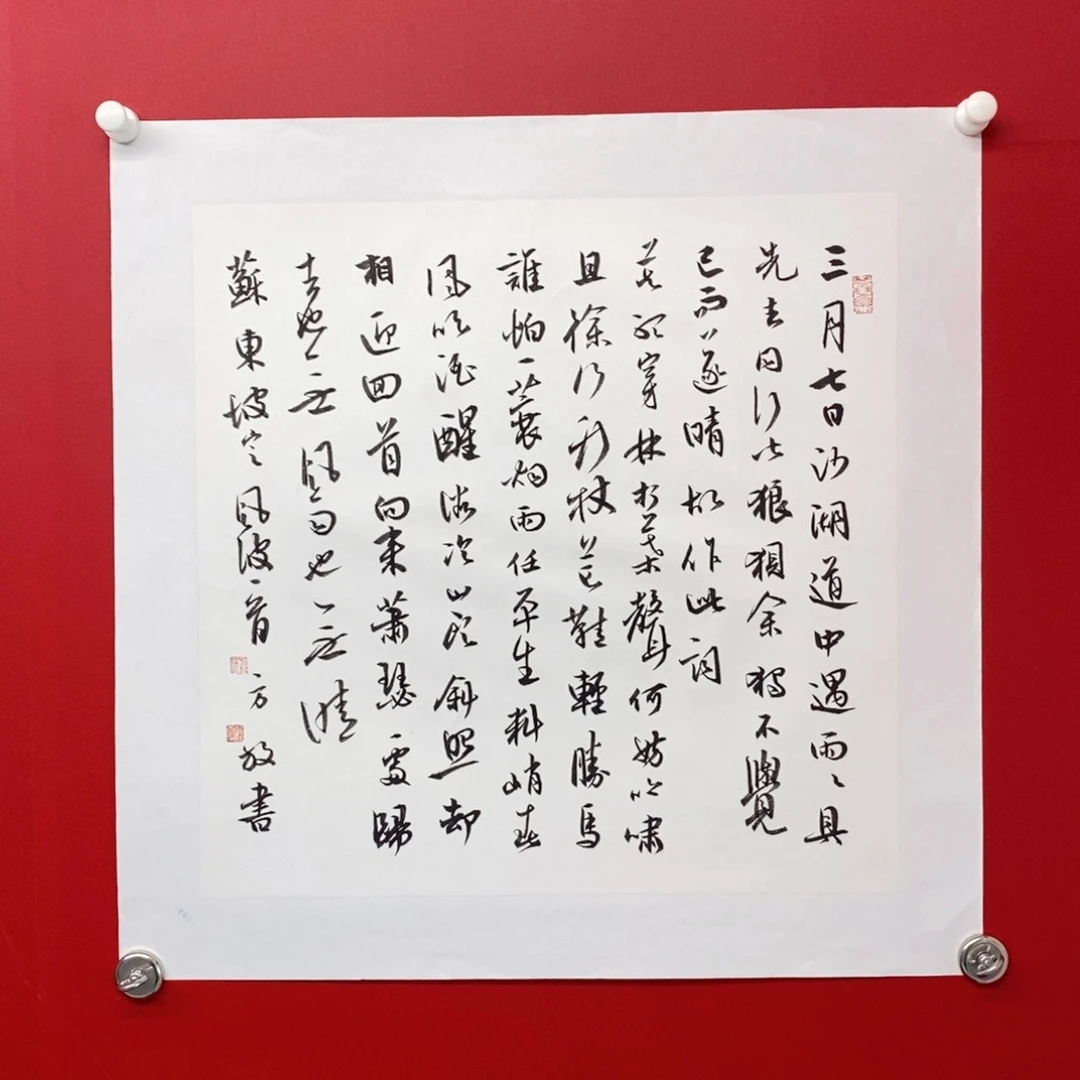 三月七日沙湖道中遇雨〻具
先去同行皆狼狽余獨不覺
已而遂晴故作此詞
莫聽穿林打葉聲何妨吟嘯
且徐行竹杖芒鞋輕勝馬
誰怕一蓑烟雨任平生料峭春
風吹酒醒微冷山頭斜照却
相迎回首向來蕭瑟處歸
去也無風雨也無晴
蘇東坡定風波一首方放書